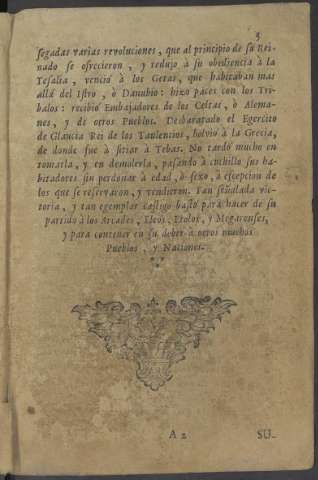 3
segadas varias revoluciones, que al principio de su Rei-
nado se ofrecieron, y redujo à su obediencia à la
Tesalia, venciò à los Getas, que habitaban mas
allà del Istro, ò Danubio: hizo paces con los Tri-
balos: recibiò Embajadores de los Celtas, ò Alema-
nes, y de otros Pueblos. Desbaratado el Egercito
de Glaucia Rei de los Taulencios, bolviò a la Grecia,
de donde fue à sitiar à Tebas. No tardò mucho en
tomarla, y en demolerla, pasando à cuchillo sus ha-
bitadores sin perdonar à edad, ò sexo, à escepcion de
los que se reservaron, y vendieron. Tan señalada vic-
toria, y tan egemplar castigo bastò para hacer de su
partido à los Arcades, Eleos, Etolos, y Megarenses,
y para contener en su deber à otros muchos
Pueblos, y Naciones.
A 2 SU-